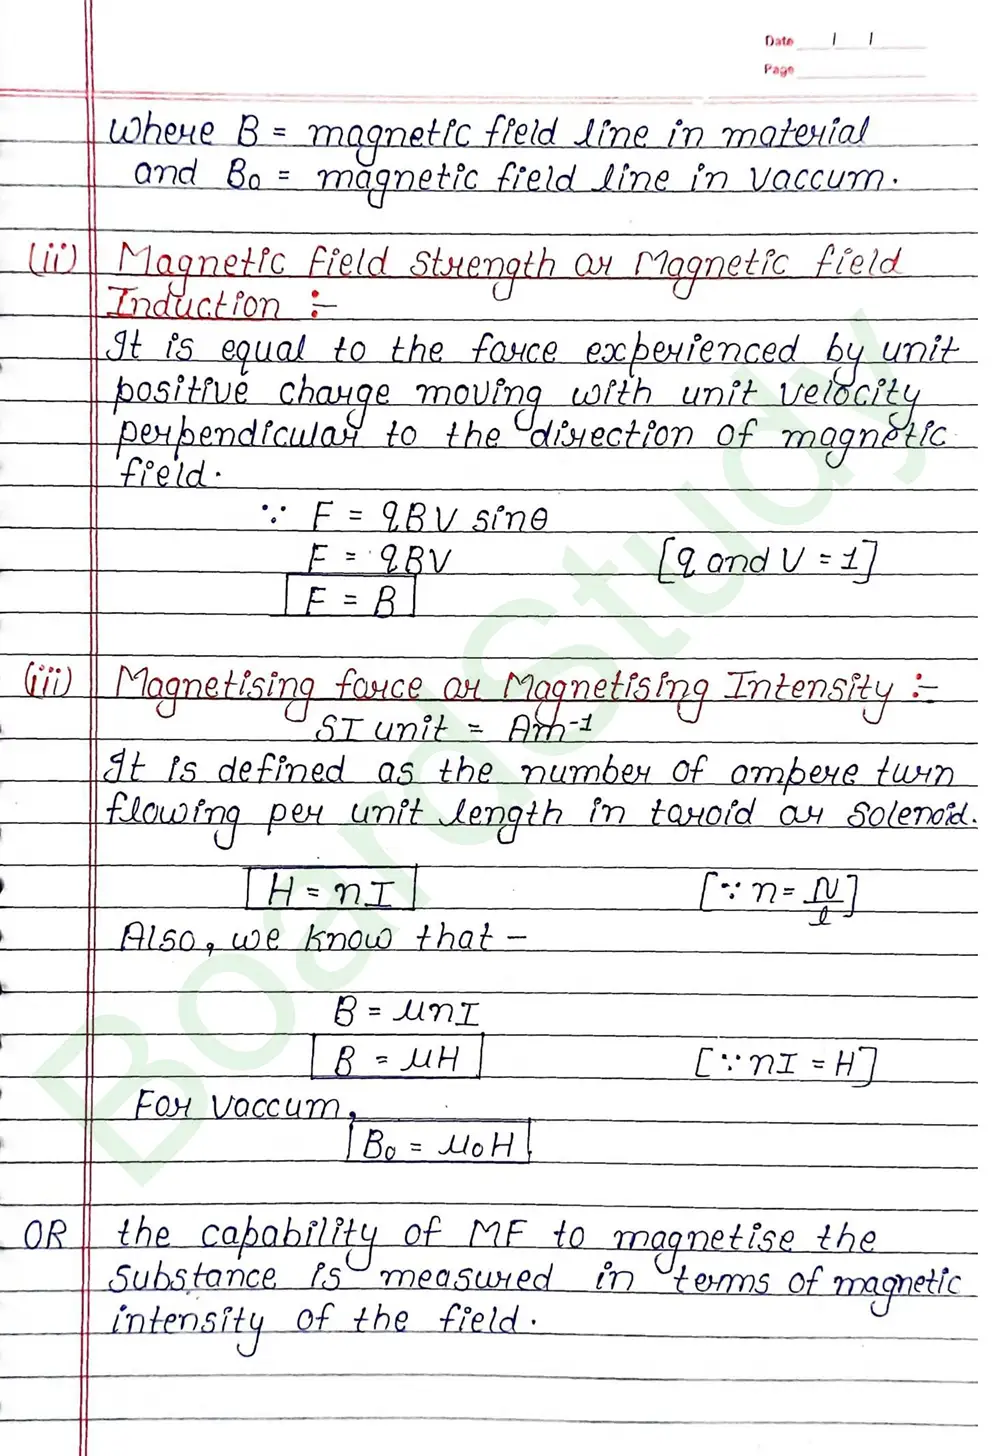 Date / /
Page
where B = magnetic field line in material
and B₀ = magnetic field line in vaccum.
(ii) Magnetic field Strength or Magnetic field
Induction :-
It is equal to the force experienced by unit
positive charge moving with unit velocity
perpendicular to the direction of magnetic
field.
∵ F = qBV sinθ
F = qBV [q and V = 1]
F = B
(iii) Magnetising force or Magnetising Intensity :-
SI unit = Am⁻¹
It is defined as the number of ampere turn
flowing per unit length in toroid or solenoid.
H = nI [∵ n = N/l]
Also, we know that -
B = μnI
B = μH [∵ nI = H]
For vaccum,
B₀ = μ₀H
OR the capability of MF to magnetise the
substance is measured in terms of magnetic
intensity of the field.
BoardStudy